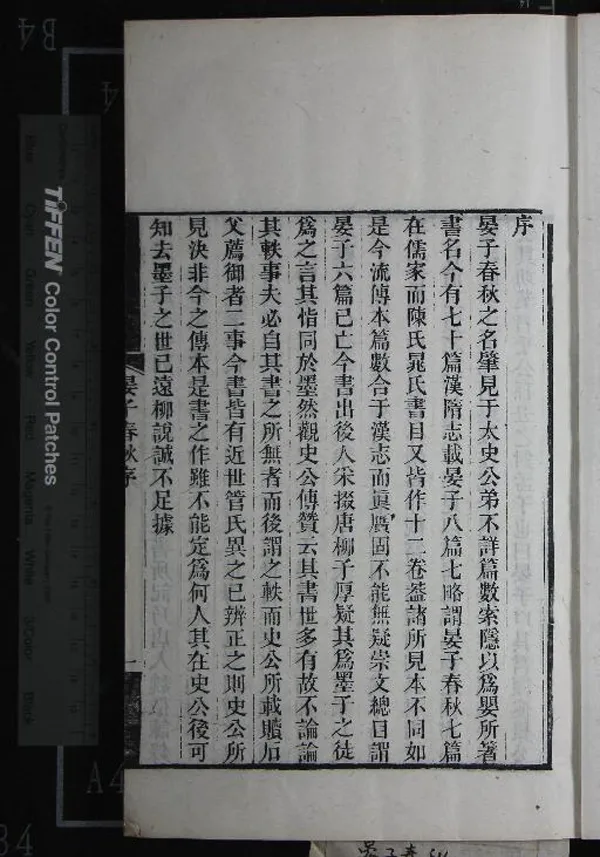 序
晏子春秋之名肇見于太史公弟不詳篇數索隱以爲嬰所著
書名今有七十篇漢隋志載晏子八篇七略謂晏子春秋七篇
在儒家而陳氏晁氏書目又皆作十二卷葢諸所見本不同如
是今流傳本篇數合于漢志而眞贋固不能無疑崇文總目謂
晏子六篇已亡今書出後人采掇唐柳子厚疑其爲墨子之徒
爲之言其恉同於墨然觀史公傳贊云其書世多有故不論論
其軼事夫必自其書之所無者而後謂之軼而史公所載贖石
父薦御者二事今書皆有近世管氏異之已辨正之則史公所
見決非今之傳本是書之作雖不能定爲何人其在史公後可
知去墨子之世已遠柳說誠不足據
晏子春秋序
一
TIFFEN Color Control Patches
Blue
Cyan
Green
Yellow
Red
Magenta
White
3/Color
Black
B4
4
A4
B4